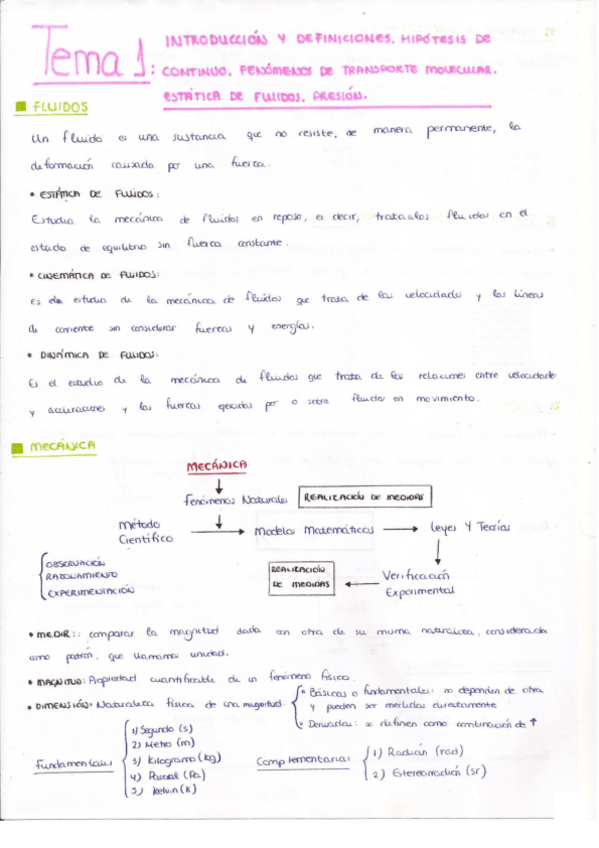 Tema 1: INTRODUCCIÓN Y DEFINICIONES. HIPÓTESIS DE
CONTINUO. FENÓMENOS DE TRANSPORTE MOLECULAR.
ESTÁTICA DE FLUIDOS. PRESIÓN.
FLUIDOS
Un fluido es una sustancia que no resiste, de manera permanente, la
deformación causada por una fuerza.
• ESTÁTICA DE FLUIDOS:
Estudia la mecánica de fluidos en reposo, es decir, trata a los fluidos en el
estado de equilibrio sin fuerza constante.
• CINEMÁTICA DE FLUIDOS:
Es el estudio de la mecánica de fluidos que trata de las velocidades y las líneas
de corriente sin considerar fuerzas y energías.
• DINÁMICA DE FLUIDOS:
Es el estudio de la mecánica de fluidos que trata de las relaciones entre velocidades
y aceleraciones y las fuerzas ejercidas por o sobre fluidos en movimiento.
MECÁNICA
MECÁNICA
Fenómenos Naturales
REALIZACIÓN DE MEDIDAS
Método
Científico
Modelos Matemáticos
Leyes Y Teorías
OBSERVACIÓN
RAZONAMIENTO
EXPERIMENTACIÓN
REALIZACIÓN
DE MEDIDAS
Verificación
Experimental
• MEDIR:: comparar la magnitud dada con otra de su misma naturaleza, considerada
como patrón, que llamamos unidad.
• MAGNITUD: Propiedad cuantificable de un fenómeno físico.
• DIMENSIÓN: Naturaleza física de una magnitud.
• Básicas o fundamentales: no dependen de otra
y pueden ser medidas directamente
• Derivadas: se definen como combinación de ↑
Fundamentales
1) Segundo (s)
2) Metro (m)
3) Kilogramo (kg)
4) Pascal (Pa)
5) Kelvin (K)
Complementarias
1) Radián (rad)
2) Estereorradián (sr)